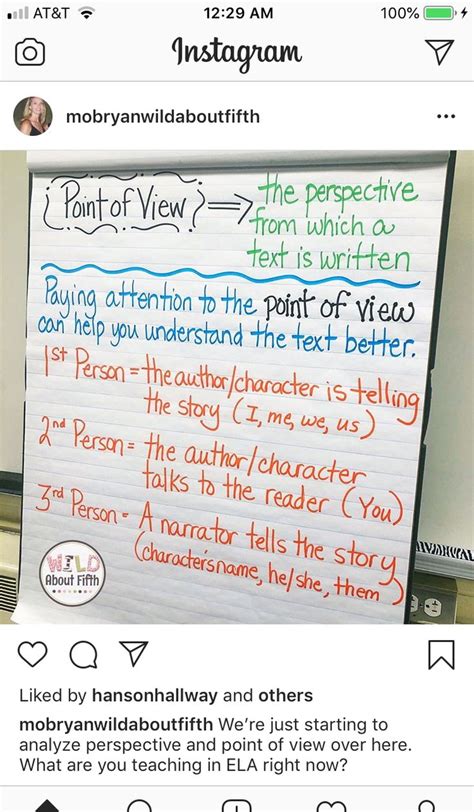 AT&T
12:29 AM
100%
Instagram
mobryanwildaboutfifth
Point of View ⇒ the perspective
from which a
text is written
Paying attention to the point of view
can help you understand the text better.
1st Person = the author/character is telling
the story (I, me, we, us)
2nd Person = the author/character
talks to the reader (You)
3rd Person - A narrator tells the story
(character's name, he/she, them)
WILD
About Fifth
Liked by hansonhallway and others
mobryanwildaboutfifth We're just starting to
analyze perspective and point of view over here.
What are you teaching in ELA right now?